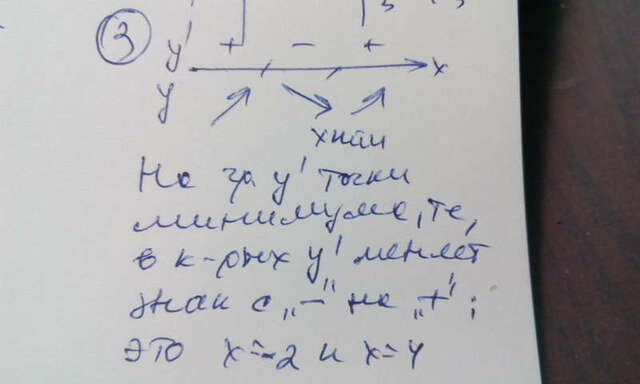 3
y' + − +
x
y
xмин
На гр y' точки
минимума, те,
в к-рых y' меняет
знак с „−" на „+";
это x=-2 и x=4